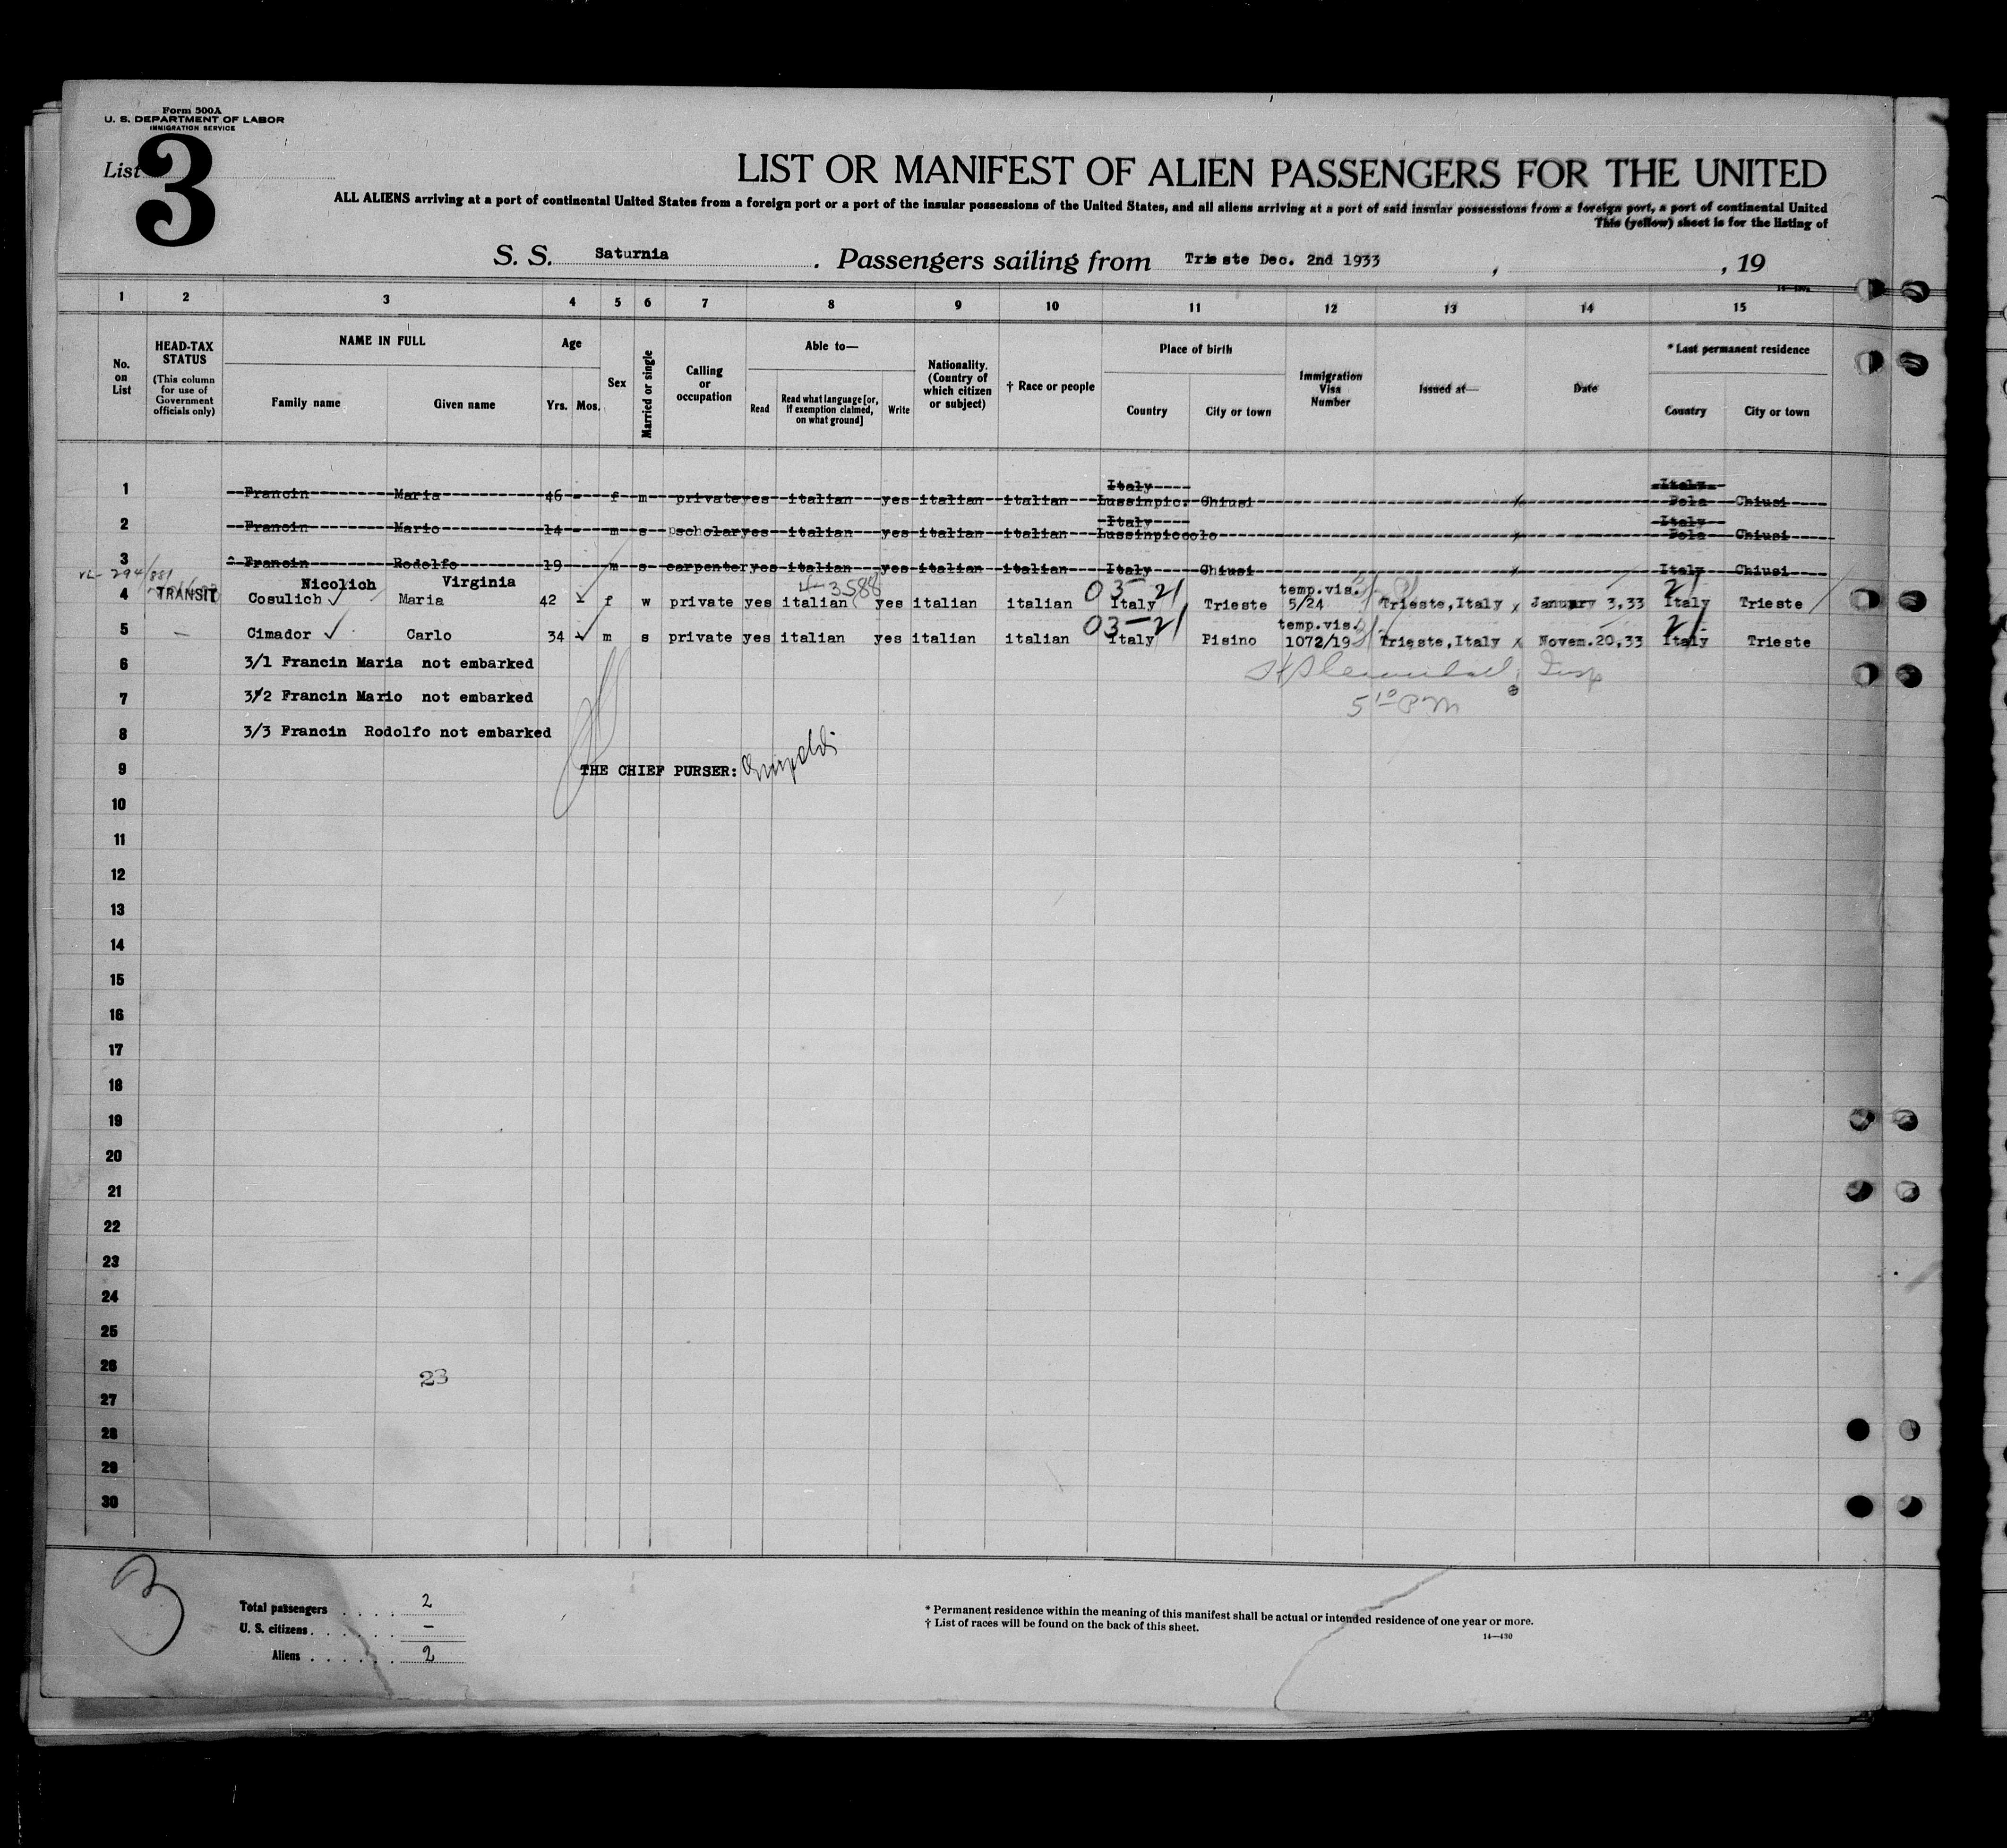 Form 500A
U. S. DEPARTMENT OF LABOR
IMMIGRATION SERVICE
List 3
LIST OR MANIFEST OF ALIEN PASSENGERS FOR THE UNITED
ALL ALIENS arriving at a port of continental United States from a foreign port or a port of the insular possessions of the United States, and all aliens arriving at a port of said insular possessions from a foreign port, a port of continental United
This (yellow) sheet is for the listing of
S. S. Saturnia. Passengers sailing from Trieste Dec. 2nd 1933, , 19
1 2 3 4 5 6 7 8 9 10 11 12 13 14 15
No. on List
HEAD-TAX STATUS (This column for use of Government officials only)
NAME IN FULL Family name Given name
Age Yrs. Mos.
Sex
Married or single
Calling or occupation
Able to— Read Read what language [or, if exemption claimed, on what ground] Write
Nationality. (Country of which citizen or subject)
† Race or people
Place of birth Country City or town
Immigration Visa Number
Issued at—
Date
* Last permanent residence Country City or town
1 Francin Maria 46 - f m private yes italian yes italian italian Italy Lussinpic. Chiusi x Italy Pola Chiusi
2 Francin Mario 14 - m s scholar yes italian yes italian italian Italy Lussinpiccolo x Italy Pola Chiusi
3 Francin Rodolfo 19 m s carpenter yes italian yes italian italian Italy Chiusi Italy Chiusi
VL-294/881
Nicolich Virginia 4-3588 03-21 temp.vis. 21
4 TRANSIT Cosulich ✓ Maria 42 - f w private yes italian yes italian italian Italy Trieste 5/24 Trieste,Italy x January 3,33 Italy Trieste
03-21 temp.vis. 21
5 - Cimador ✓ Carlo 34 ✓ m s private yes italian yes italian italian Italy Pisino 1072/19 Trieste,Italy x Novem.20,33 Italy Trieste
6 3/1 Francin Maria not embarked
Insp
7 3/2 Francin Mario not embarked
5 10 PM
8 3/3 Francin Rodolfo not embarked
9 THE CHIEF PURSER:
10
11
12
13
14
15
16
17
18
19
20
21
22
23
24
25
26
23
27
28
29
30
3
Total passengers . . . . 2
U. S. citizens . . . . . . —
Aliens . . . . . . 2
* Permanent residence within the meaning of this manifest shall be actual or intended residence of one year or more.
† List of races will be found on the back of this sheet.
14—430